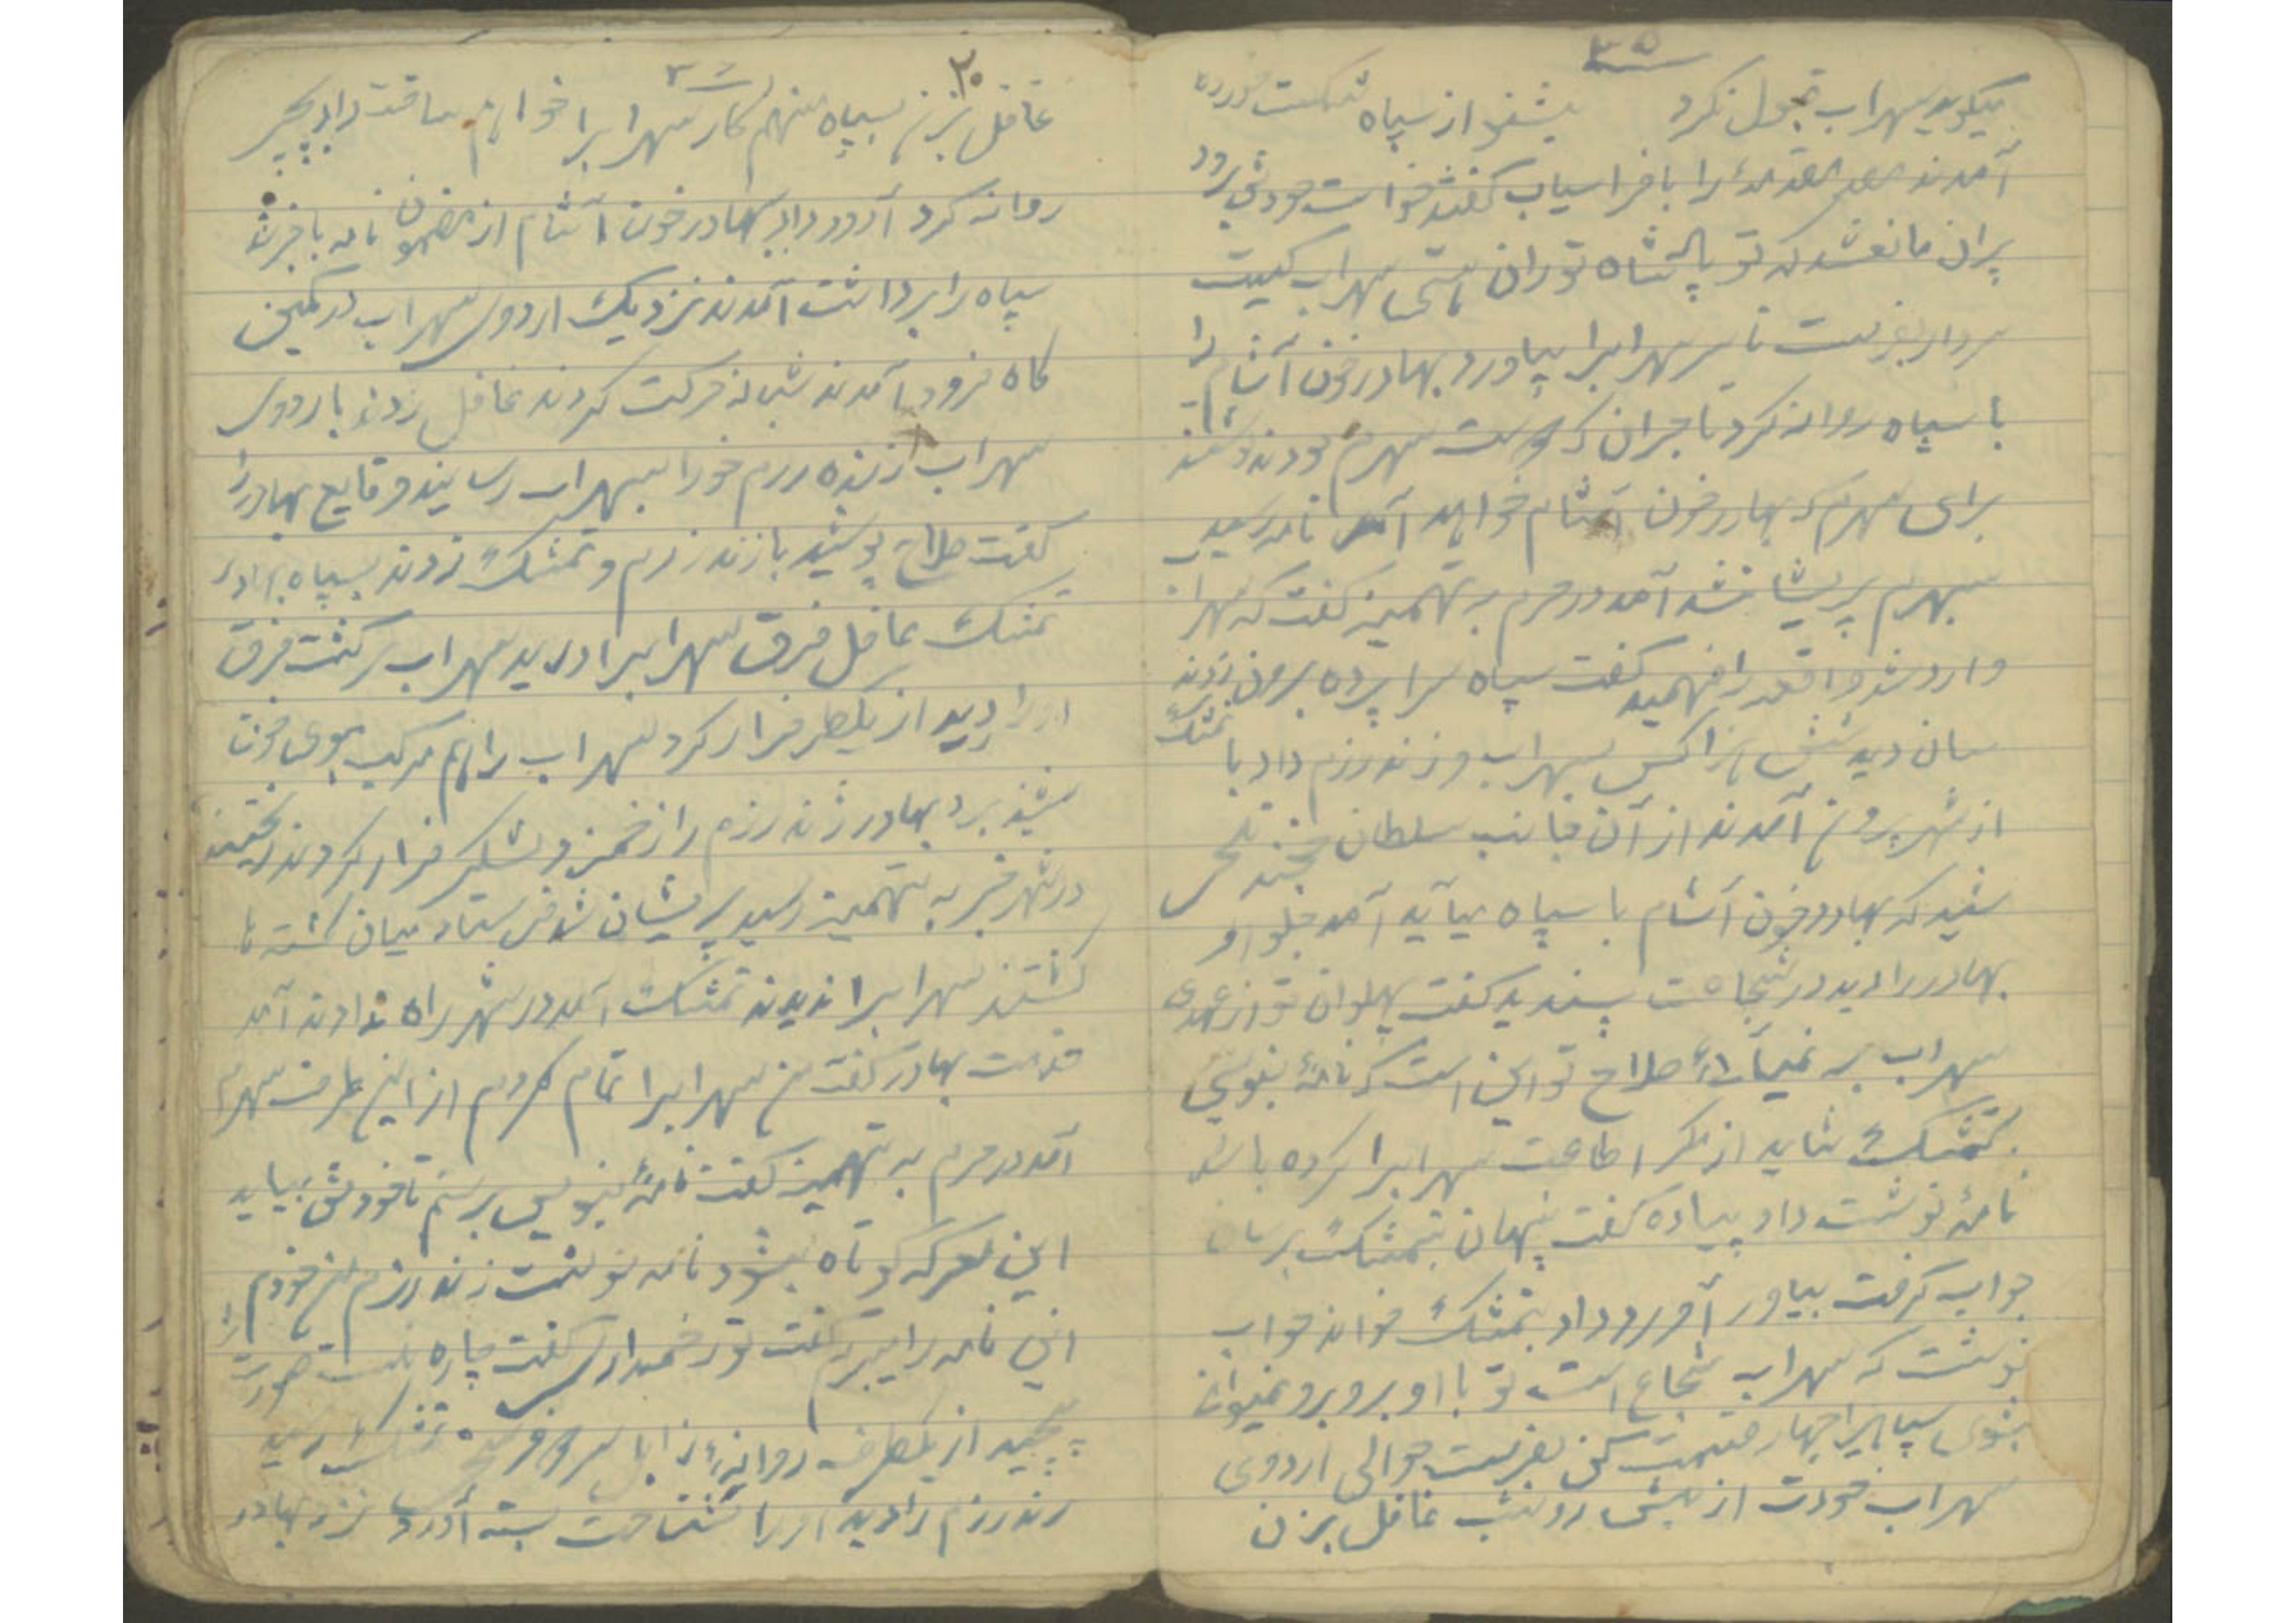 ۳۵
میگوید سهراب قبول نکرد بشنو از سپاه شکست خورده
آمدند را بافراسیاب گفتند خواست خودش برود
پران مانعشد که تو پادشاه توران هستی سهراب کیست
سردار بفرست تا سر سهرابرا بیاورد بهادر خون آشام را
با سپاه روانه کرد تاجران که دوست سهرم بودند نوشتند
برای سهرم که بهادر خون آشام خواهد آمد نامه رسید
سهرم پریشانشد آمد در حرم به تهمینه گفت که سهراب
وارد شد واقعه را فهمید گفت سپاه سرا پرده برون زدند
سان دید شش هزار کس بسهراب و زنده رزم داد با تمشک
از شهر برون آمدند از آن جانب سلطان
شنید که بهادر خون آشام با سپاه میآید آمد جلو او
بهادر را دید در شجاعت پسندید گفت پهلوان تو از عهدی
سهراب بر نمیآئی صلاح تو این است که نامهٔ بنویسی
بتمشک شاید از مکر اطاعت سهرابرا کرده باشد
نامهٔ نوشت داد پیاده گفت پنهان بتمشک برسان
جواب گرفت بیاور آورد داد بتمشک خواند جواب
نوشت که سهراب شجاع است تو با او بروبرو نمیتوان
بشوی سپاهرا چهار قسمت کن بفرست حوالی اردوی
سهراب خودت از پیش رو شب غافل بزن
۳۶
۲۰
غافل بزنم بسپاه منهم کار سهرابرا خواهم ساخت داد بپیک
روانه کرد آورد داد بهادر خون آشام از مضمون نامه باخبر شد
سپاه را برداشت آمدند نزدیک اردوی سهراب در کمین
گاه فرود آمدند شبانه حرکت کردند غافل زدند باردوی
سهراب زنده رزم خودرا بسهراب رسانید وقایع بهادر را
گفت صلاح پوشید با زنده رزم و تمشک زدند بسپاه بهادر
تمشک غافل فرق سهرابرا درید سهراب برگشت فرق
اورا درید از یکطرف فرار کرد سهراب را هم مرکب بوی خون
شنید برد بهادر زنده رزم را زخمزد و لشکر فرار کردند ریختند
در شهر خبر به تهمینه رسید پریشان شد فرستاد میان کشته ها
گشتند سهرابرا ندیدند تمشک آمد در شهر راه ندادند آمد
خدمت بهادر گفت من سهرابرا تمام کردم از این طرف سهرم
آمد در حرم به تهمینه گفت نامهٔ بنویس برستم تا خودش بیاید
این معرکه کوتاه بشود نامه نوشت زنده رزم من خودم
این نامه را میبرم گفت تو زخمداری گفت چاره نیست صورت را
پیچید از یکطرف روانه زابل شد تمشک رسید
زنده رزم را دید اورا شناخت بسته آورد نزد بهادر